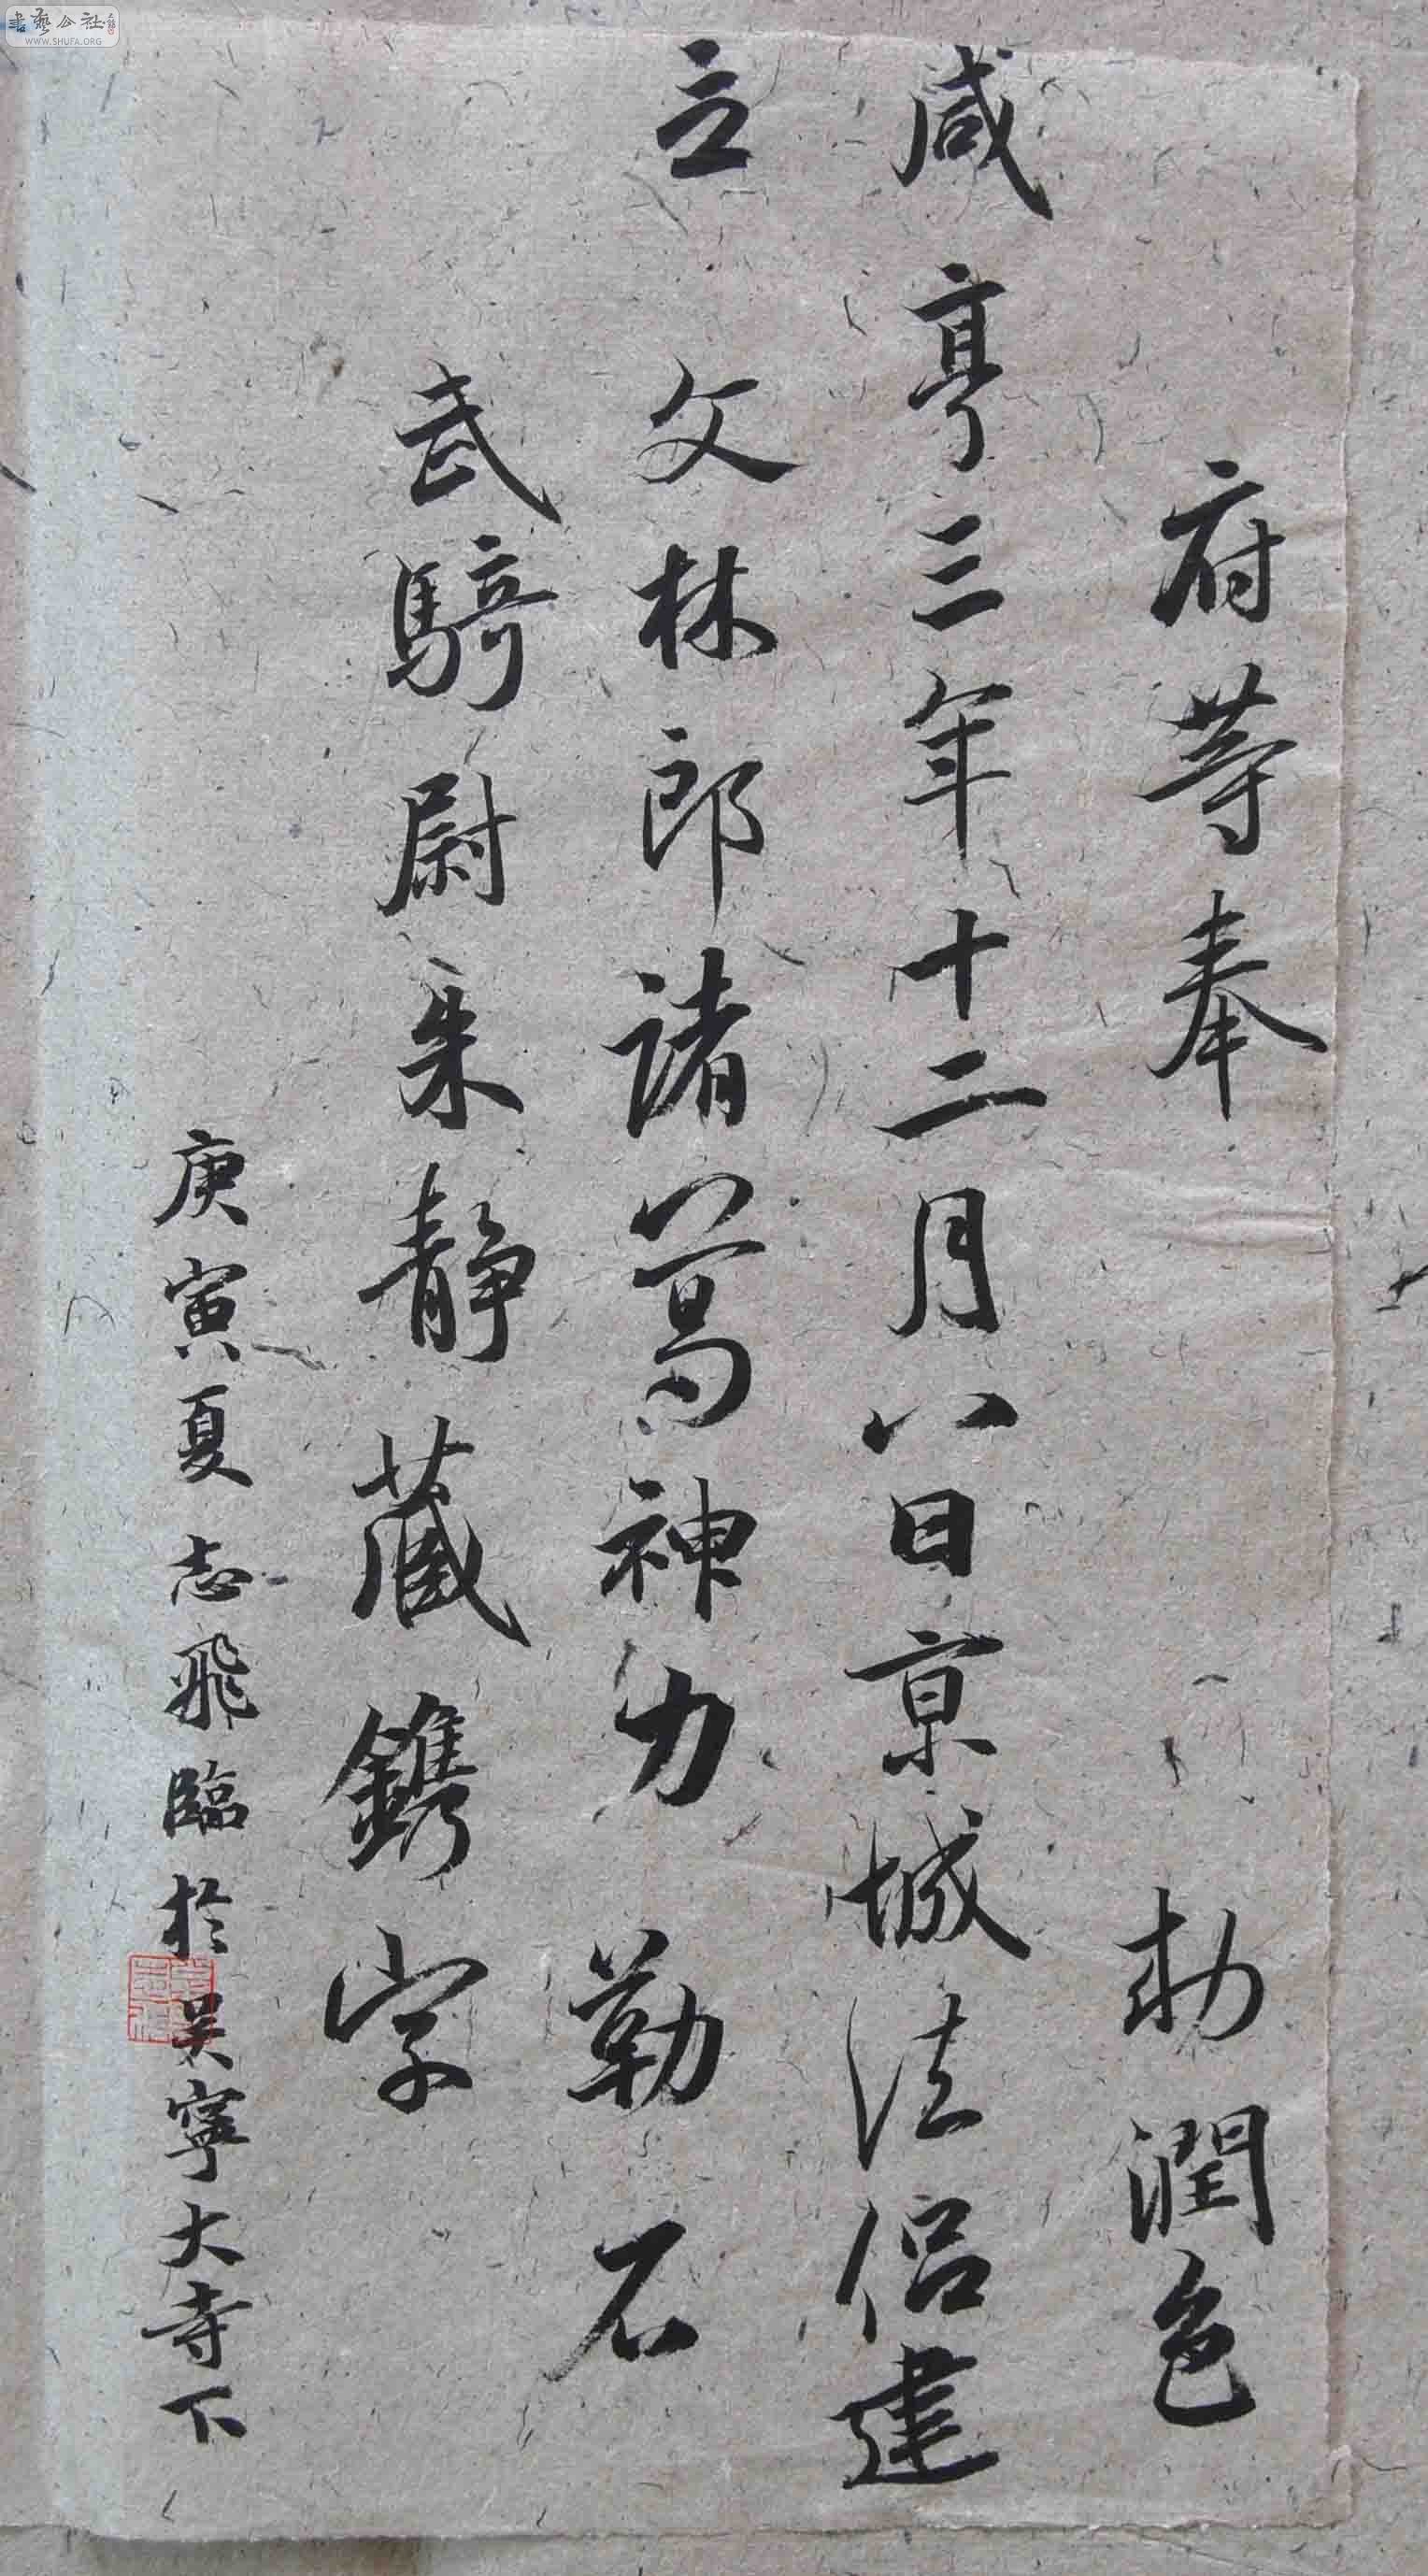 府等奉 敕潤色
咸亨三年十二月八日京城法侶建
立 文林郎諸葛神力勒石
武騎尉朱靜藏鐫字
庚寅夏志飛臨於吳寧大寺下
書藝公社
WWW.SHUFA.ORG